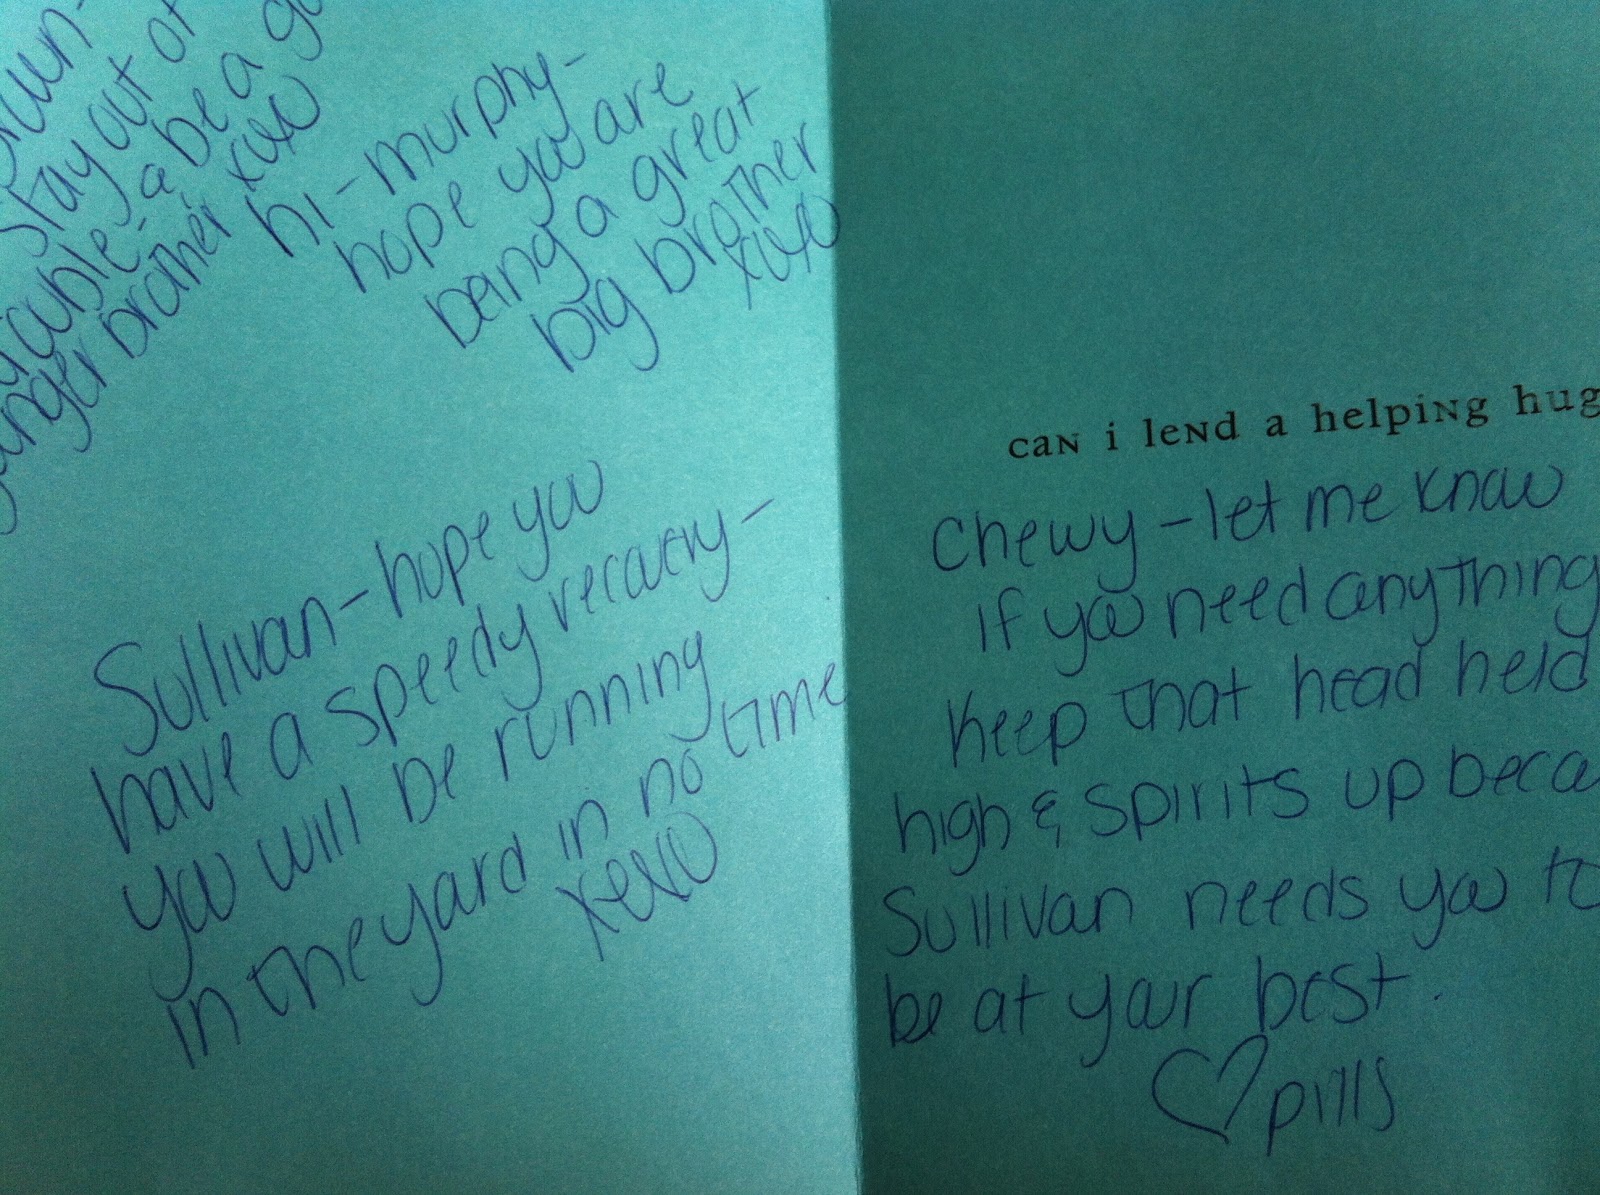 stay out of
trouble - a be a
younger brother xoxo
hi - murphy -
hope you are
being a great
big brother
xoxo
Sullivan - hope you
have a speedy recovery -
you will be running
in the yard in no time
xoxo
can i lend a helping hug
Chewy - let me know
if you need anything
Keep that head held
high & spirits up beca
Sullivan needs you to
be at your best.
♡ pills